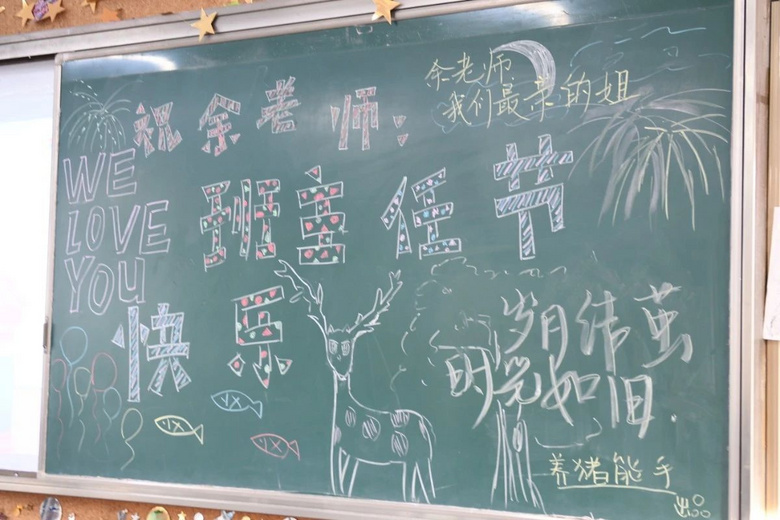 祝余老师:
余老师
我们最亲的姐
WE
LOVE
YOU
班主任节
快乐
岁月结茧
明亮如旧
养猪能手